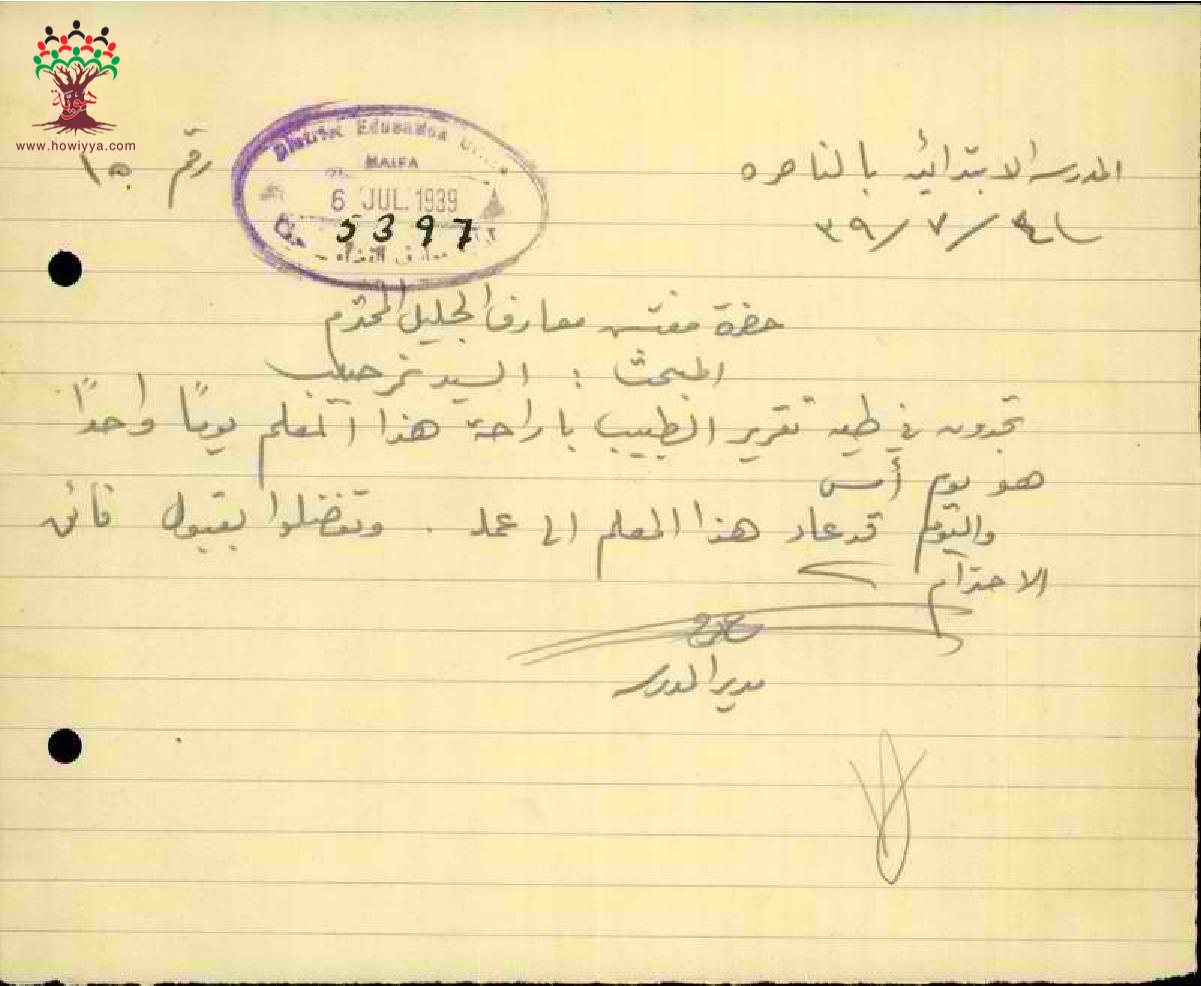 هوية
www.howiyya.com
District Education Office
HAIFA
6 JUL. 1939
5397
رقم ١٥
المدرسه الابتدائيه بالناصره
٣٩/٧/٤
حضرة مفتش معارف الجليل المحترم
المبحث : السيد نمر حبيب
تجدون في طيه تقرير الطبيب باراحة هذا المعلم يومًا واحدًا
هو يوم أمس
واليوم قد عاد هذا المعلم الى عمله . وتفضلوا بقبول فائق
الاحترام
مدير المدرسه